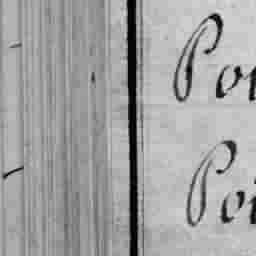 Po
Poi